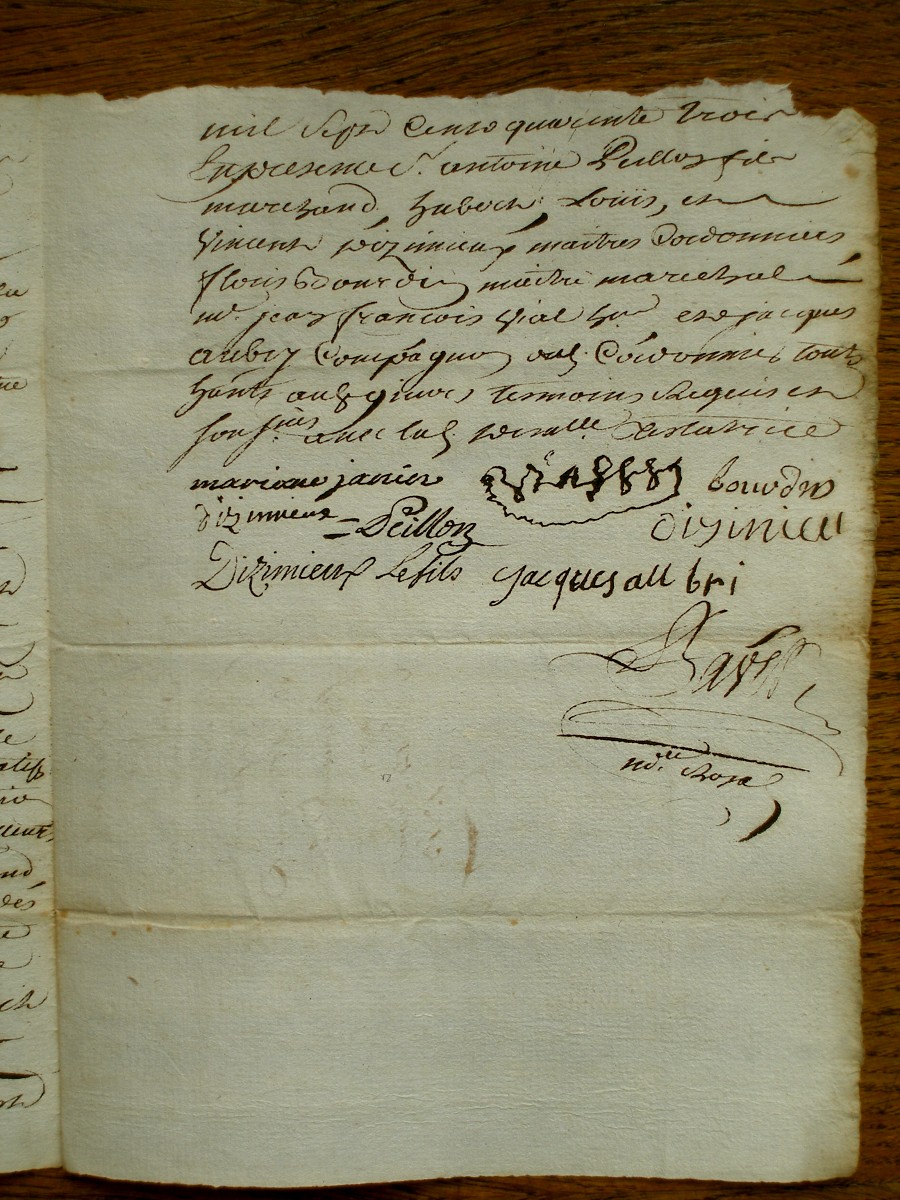 mil sept cents quarente trois
En presence Sr. antoine Peillon fils
marchand, hubert Louïs, et
Vincent dizimieux maitres Cordonniers
flouis Bourdin maitre marechal
me. jean françois Vial et jacques
aubry Compagnon Cordonnier touts
temoins Requis et
soussignés avec lad. demlle. testatrice
mariane janier
bourdin
dizimieux
= Peillon
dizimieu
Dizimieux Le fils
jacques all bri
Ravel